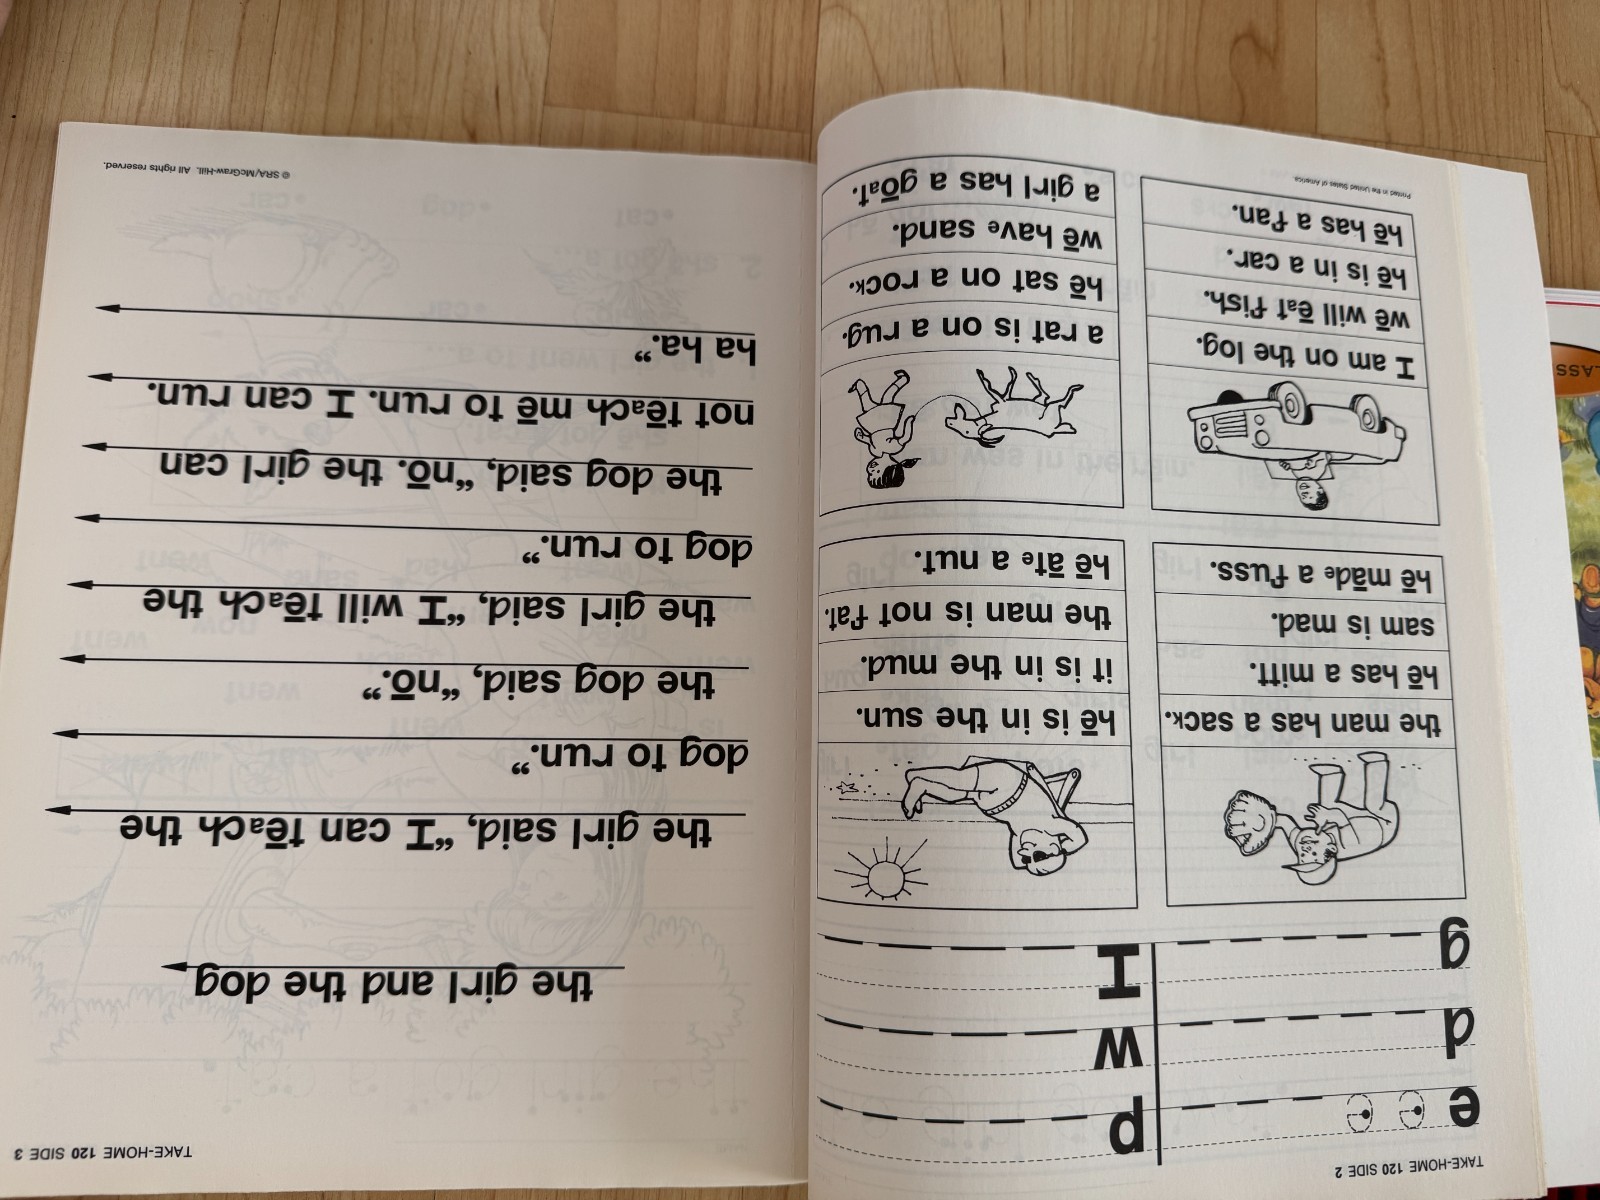 TAKE-HOME 120 SIDE 2
e e e
d
g
p
w
I
the man has a sack.
hē has a mitt.
sam is mad.
hē māde a fuss.
hē is in the sun.
it is in the mud.
the man is not fat.
hē āte a nut.
I am on the log.
wē will ēat fish.
hē is in a car.
hē has a fan.
a rat is on a rug.
hē sat on a rock.
wē have sand.
a girl has a gōat.
Printed in the United States of America.
TAKE-HOME 120 SIDE 3
the girl and the dog
the girl said, “I can tēach the
dog to run.”
the dog said, “nō.”
the girl said, “I will tēach the
dog to run.”
the dog said, “nō. the girl can
not tēach mē to run. I can run.
ha ha.”
© SRA/McGraw-Hill. All rights reserved.